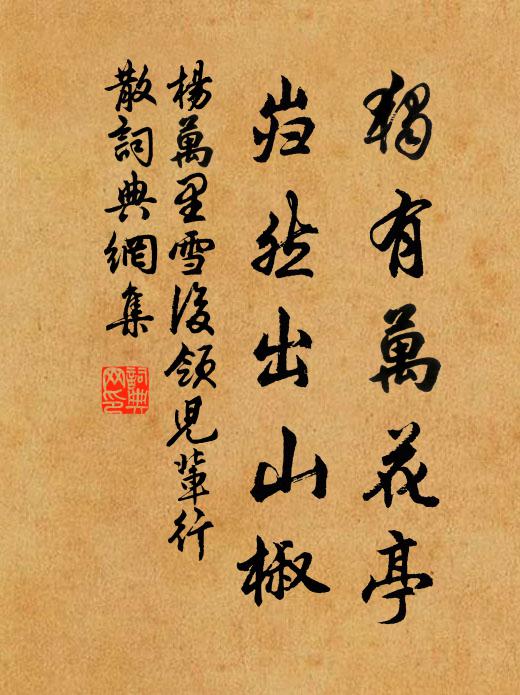 獨有萬花亭
岿然出山椒
楊萬里雪後領兒輩行
散詞典網集
詞典网印